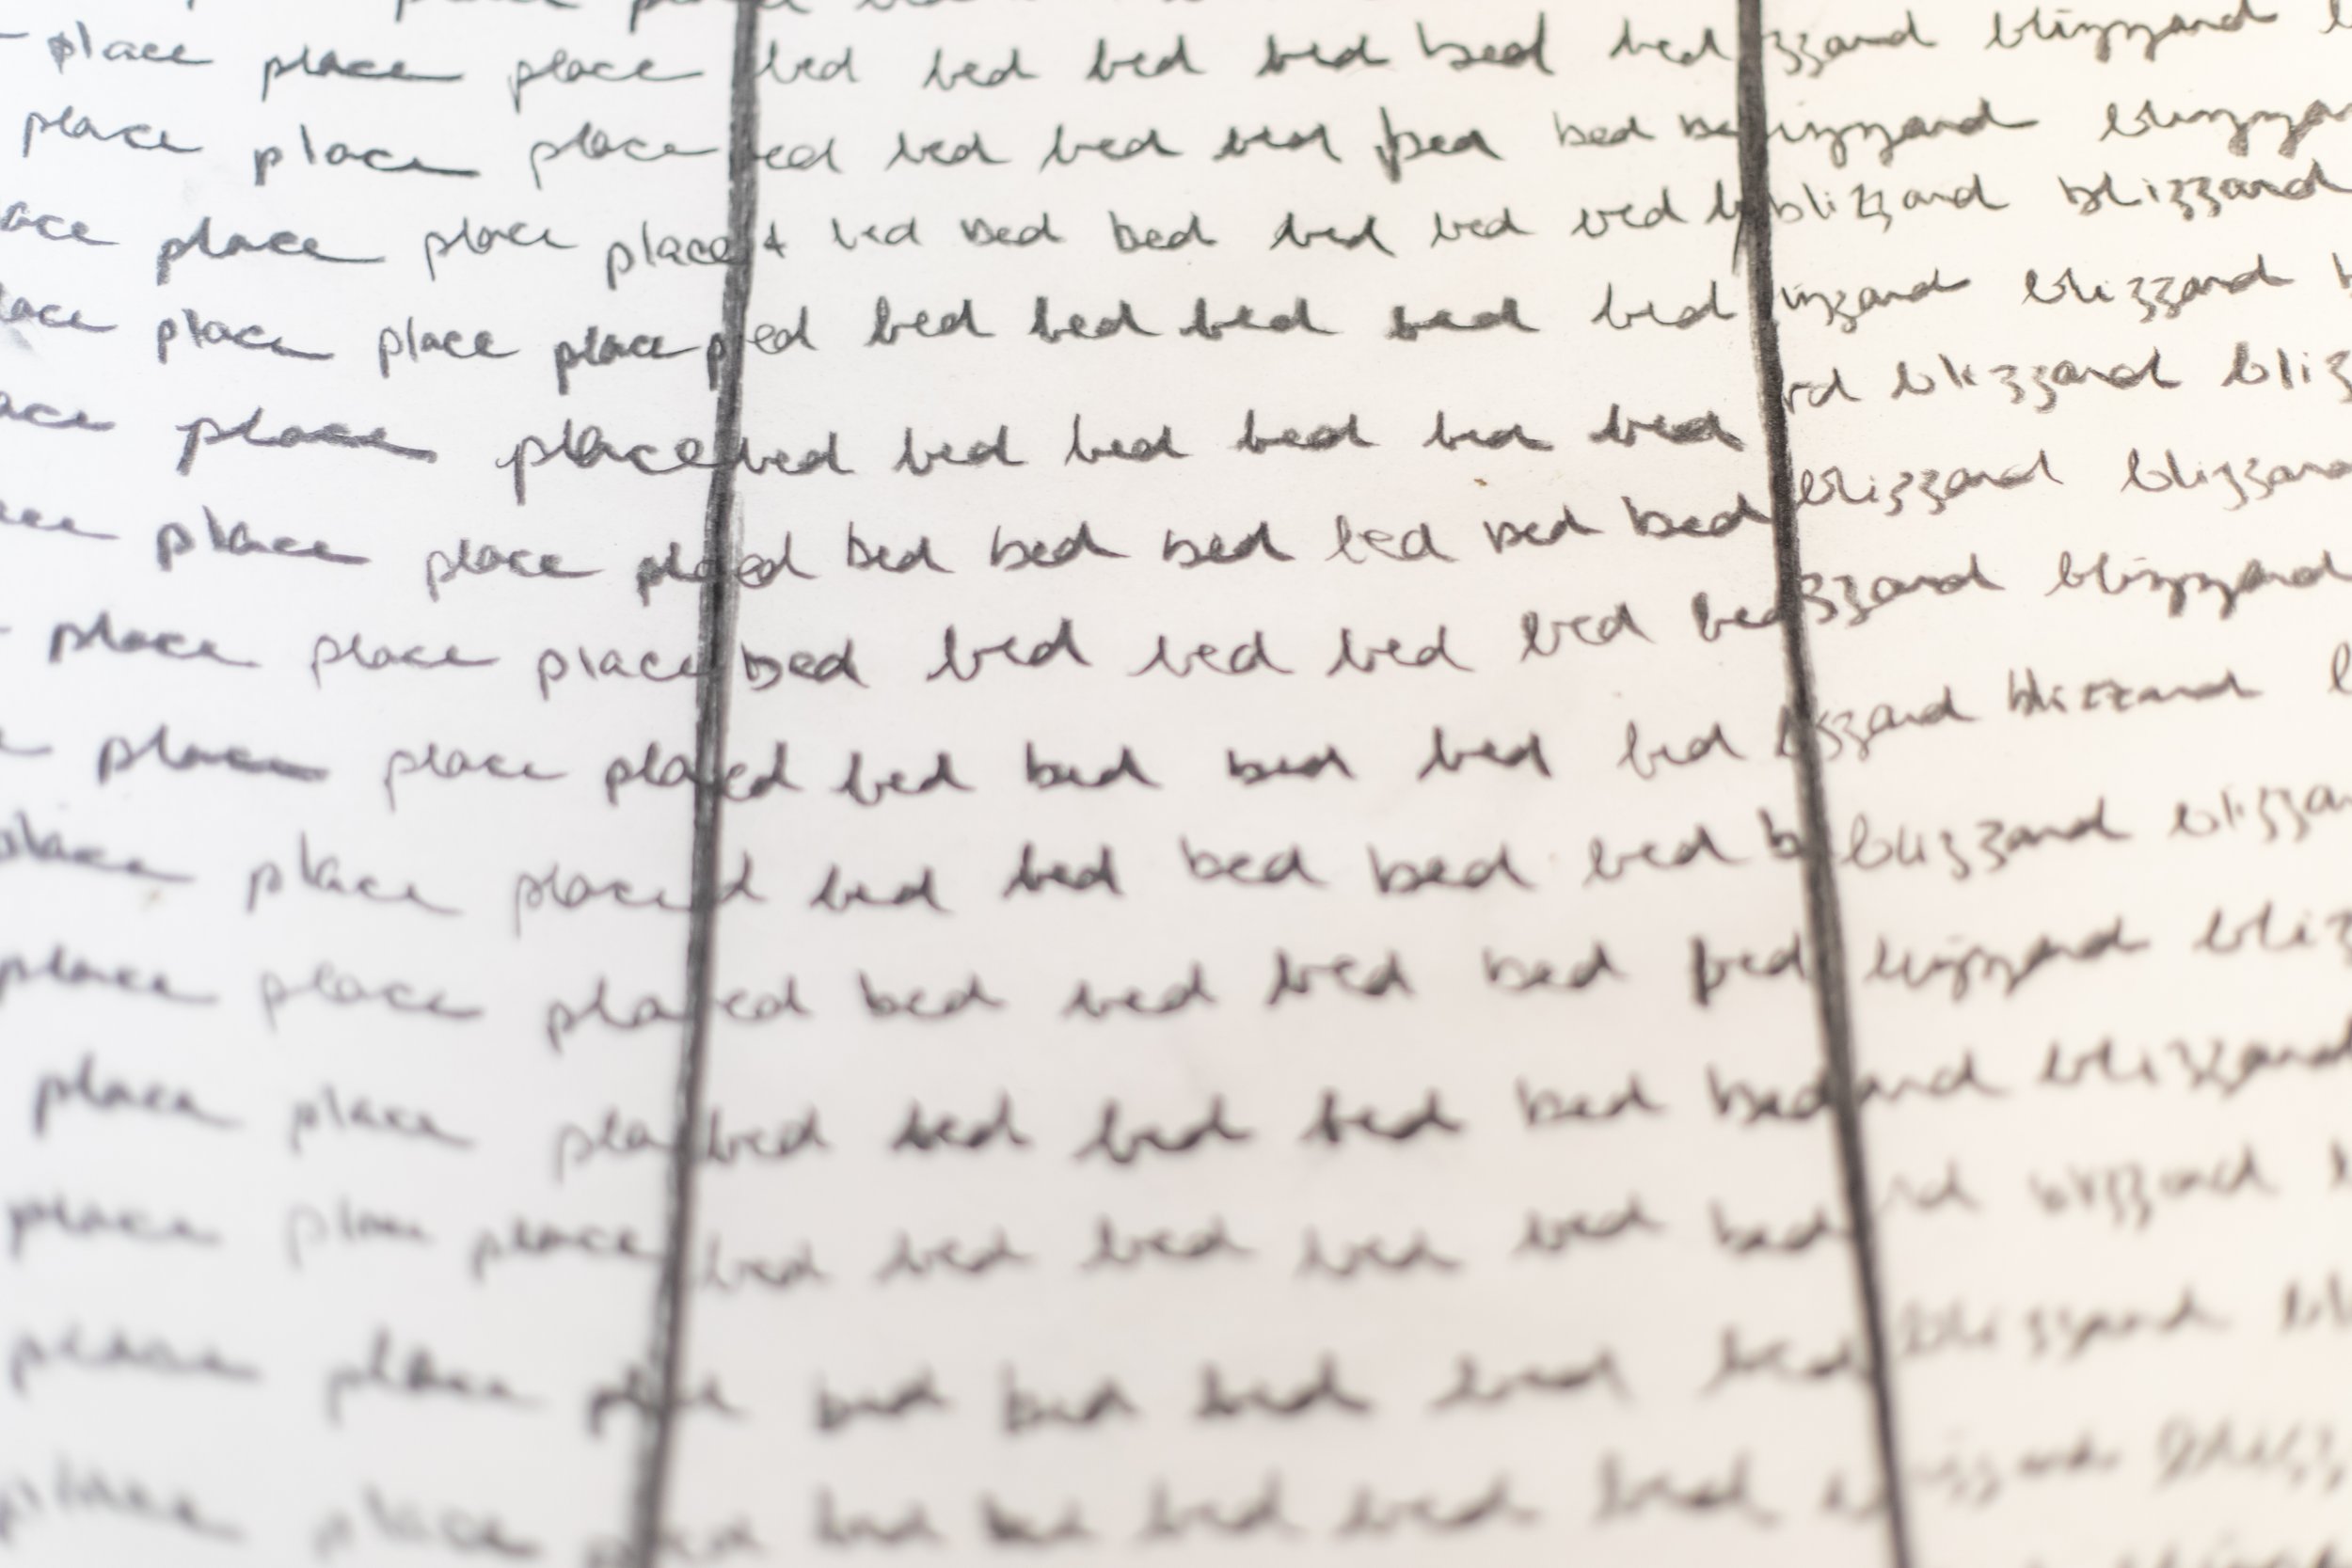 place place place bed bed bed bed bed bed zzard blizzard
place place place ed bed bed bed bed bed be izzard blizza
ace place place place bed bed bed bed bed bed b blizzard blizzard
lace place place place p ed bed bed bed bed bed izzard blizzard b
ace place place bed bed bed bed bed bed rd blizzard bliz
ace place place pla ed bed bed bed bed bed bed blizzard blizzard
place place place bed bed bed bed bed bed zzard blizzard
e place place pla ed bed bed bed bed bed zzard blizzard
place place place d bed bed bed bed bed b blizzard blizza
place place pla ed bed bed bed bed bed blizzard bliz
place place pla bed bed bed bed bed bed ard blizzard
place place place bed bed bed bed bed bed rd blizzard
place place bed bed bed bed bed blizzard bli
place place bed bed bed bed bed